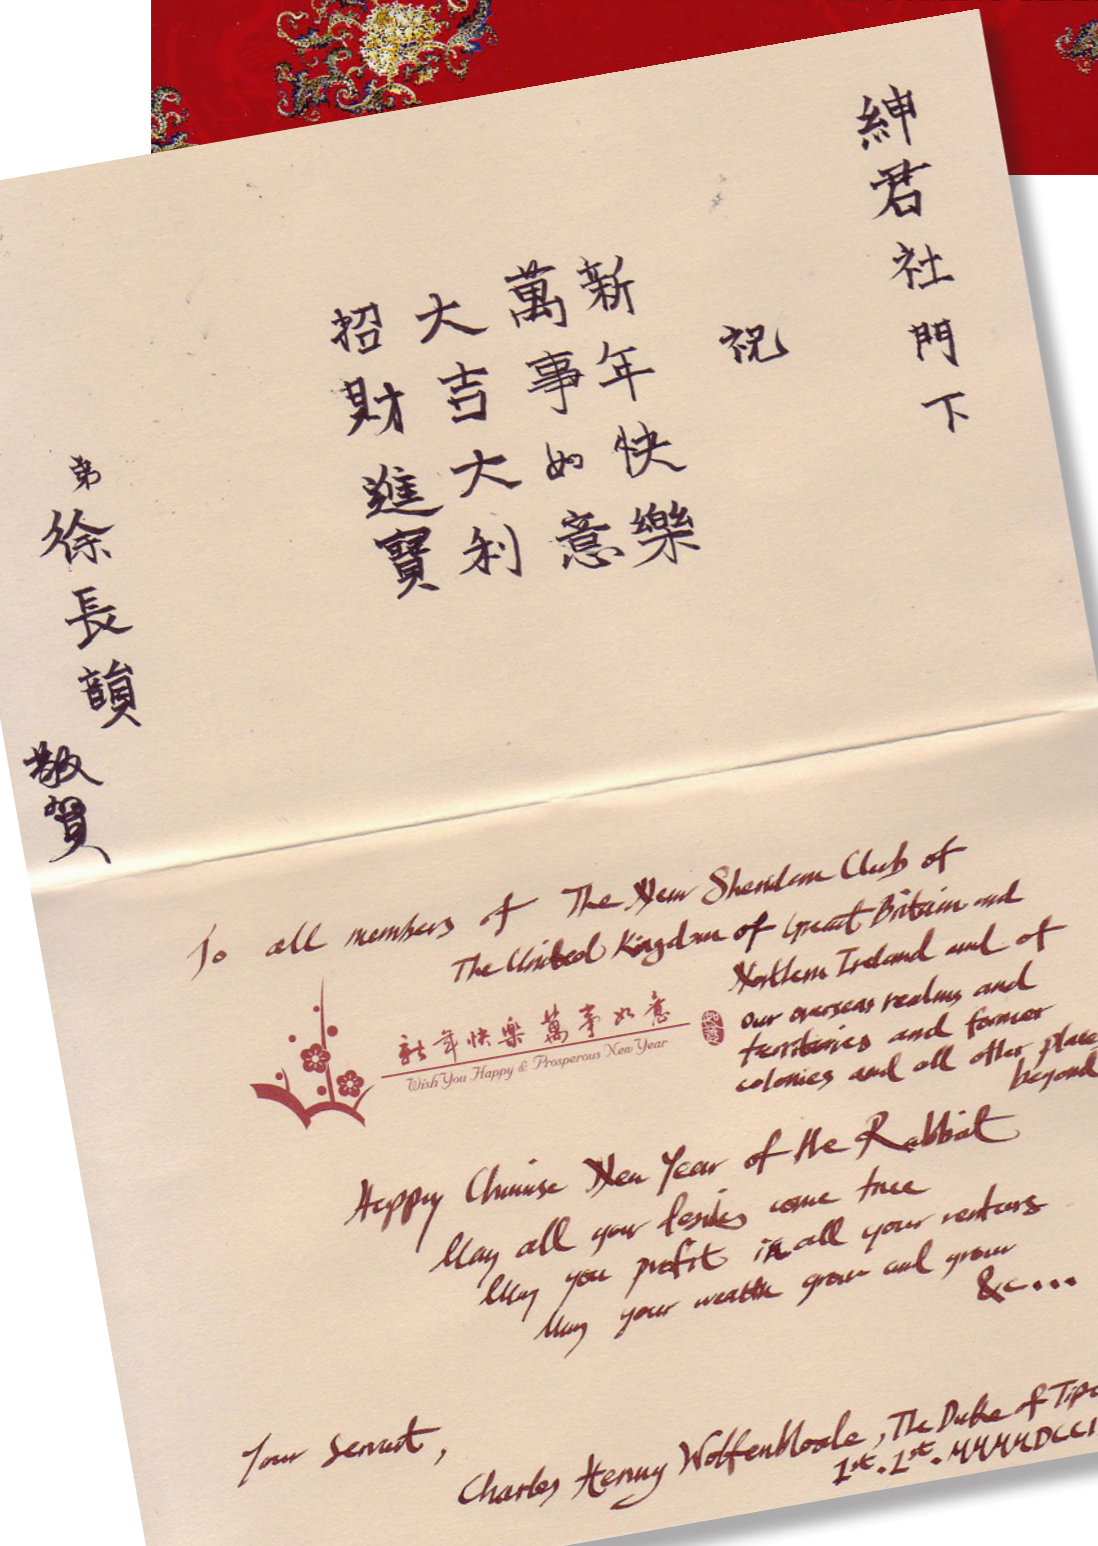 紳君社門下
祝
新年快樂
萬事如意
大吉大利
招財進寶
弟
徐長韻
敬賀
To all members of The New Sheridan Club of
The United Kingdom of Great Britain and
Northern Ireland and of
our overseas realms and
territories and former
colonies and all other place
beyond
新年快樂 萬事如意
Wish You Happy & Prosperous New Year
Happy Chinese New Year of the Rabbit
May all your desires come true
May you profit in all your ventures
May your wealth grow and grow
&c...
Your Servant,
Charles Henry Wolfenbloode, The Duke of Tip
1st. 1st. MMMMDCCI